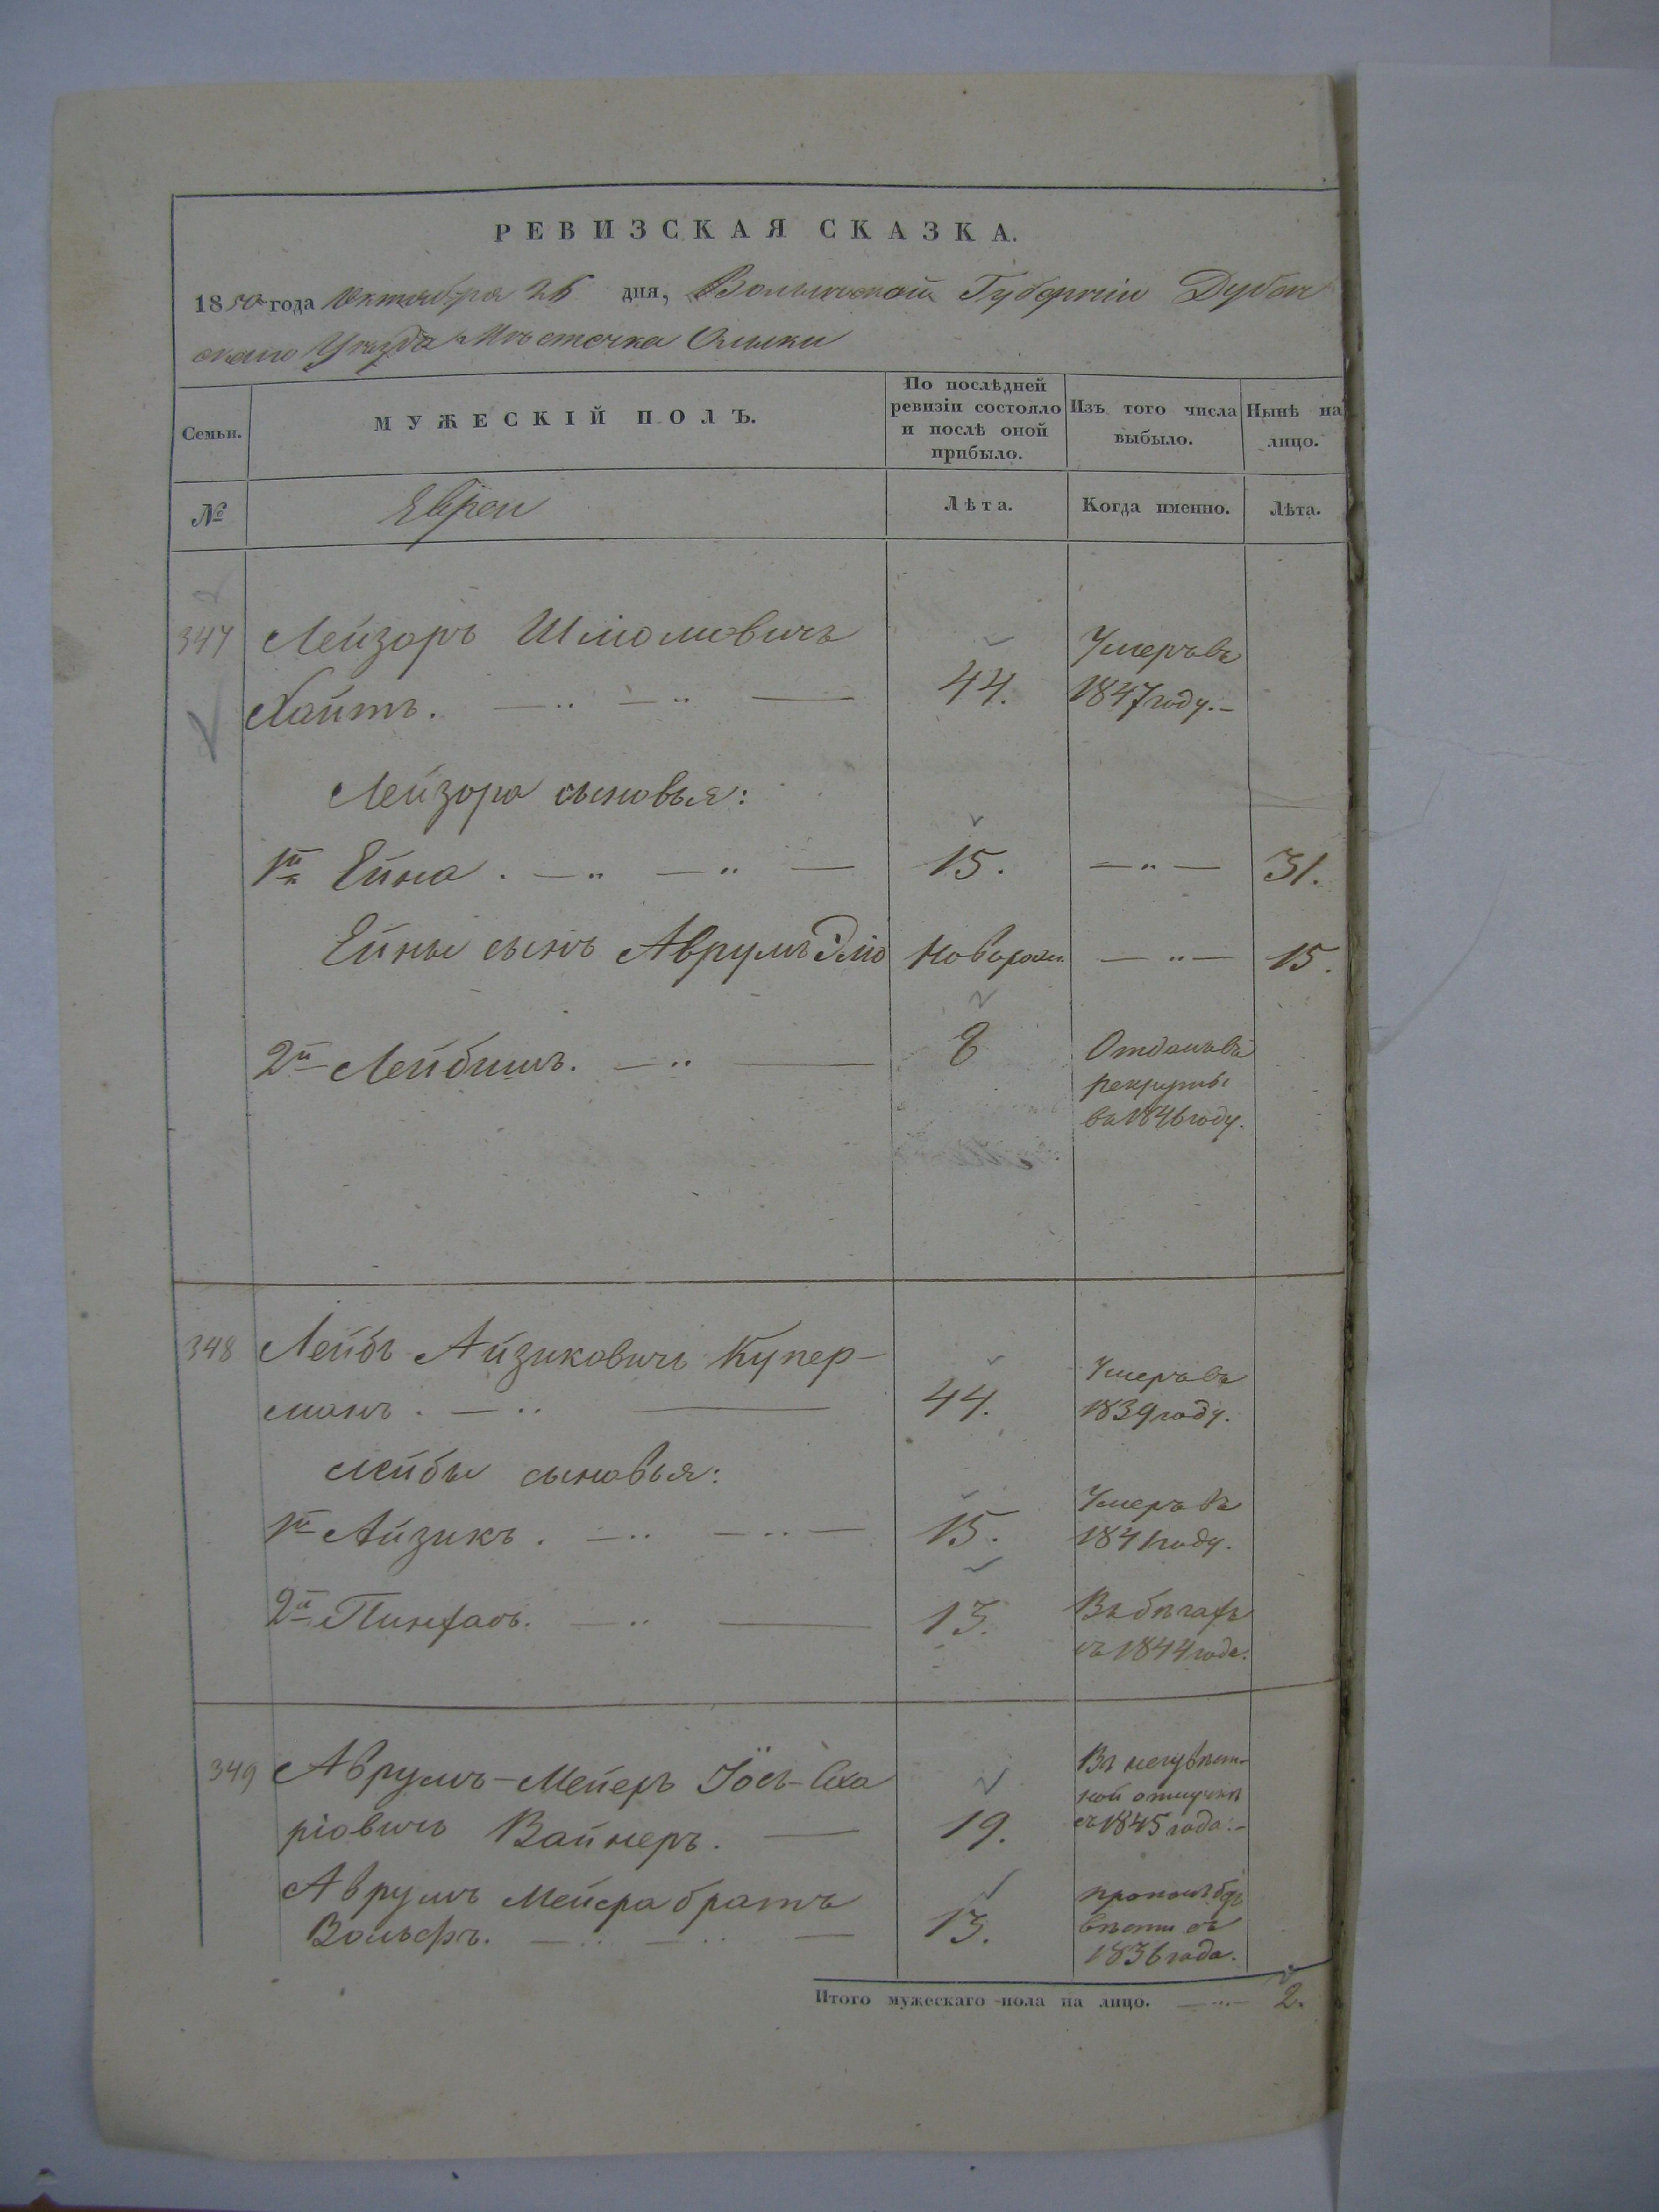 РЕВИЗСКАЯ СКАЗКА.
1850 года Октября 26 дня, Волынской Губерніи Дубен
скаго Уѣзда Мѣстечка Олыки
Семьи.
МУЖЕСКІЙ ПОЛЪ.
По послѣдней
ревизіи состояло
и послѣ оной
прибыло.
Изъ того числа
выбыло.
Нынѣ на
лицо.
№
Евреи
Лѣта.
Когда именно.
Лѣта.
347 Лейзоръ Шліомовичъ
Хайтъ. 44. Умеръ въ
1847 году.
Лейзора сыновья:
1й Ейна. 15. 31.
Ейны сынъ Аврумъ Эліо Новорожд. 15.
2й Лейбишъ. 8 Отданъ въ
рекруты
въ 1846 году.
348 Лейбъ Айзиковичъ Купер-
манъ. 44. Умеръ въ
1839 году.
Лейбы сыновья:
1й Айзикъ. 15. Умеръ въ
1841 году.
2й Пинхасъ. 13. Въ бѣгахъ
съ 1844 года.
349 Аврумъ-Мейеръ Іосъ-Сха
ріовичъ Вайнеръ. 19. Въ
ной отлучкѣ
съ 1845 года.
Аврумъ Мейера братъ
Вольфъ. 13.
вѣсти съ
1836 года.
Итого мужескаго пола на лицо. 2.